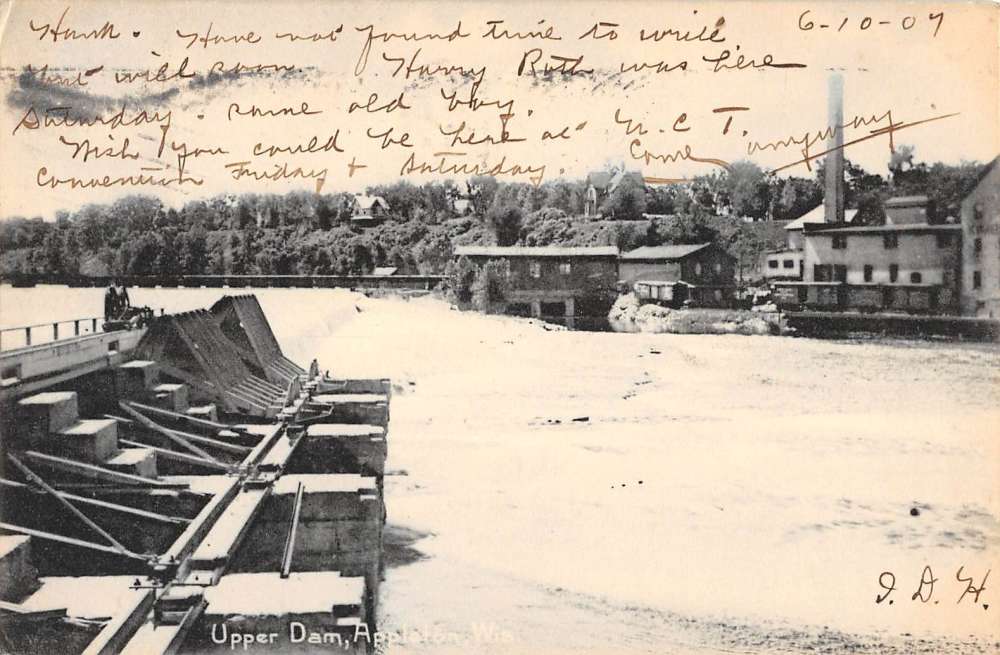 6-10-07
Hank. Have not found time to write
but will soon. Harry Roth was here
Saturday. same old boy.
Wish you could be here at U. C. T.
Convention Friday + Saturday. Come anyway.
I. D. H.
Upper Dam, Appleton Wis.